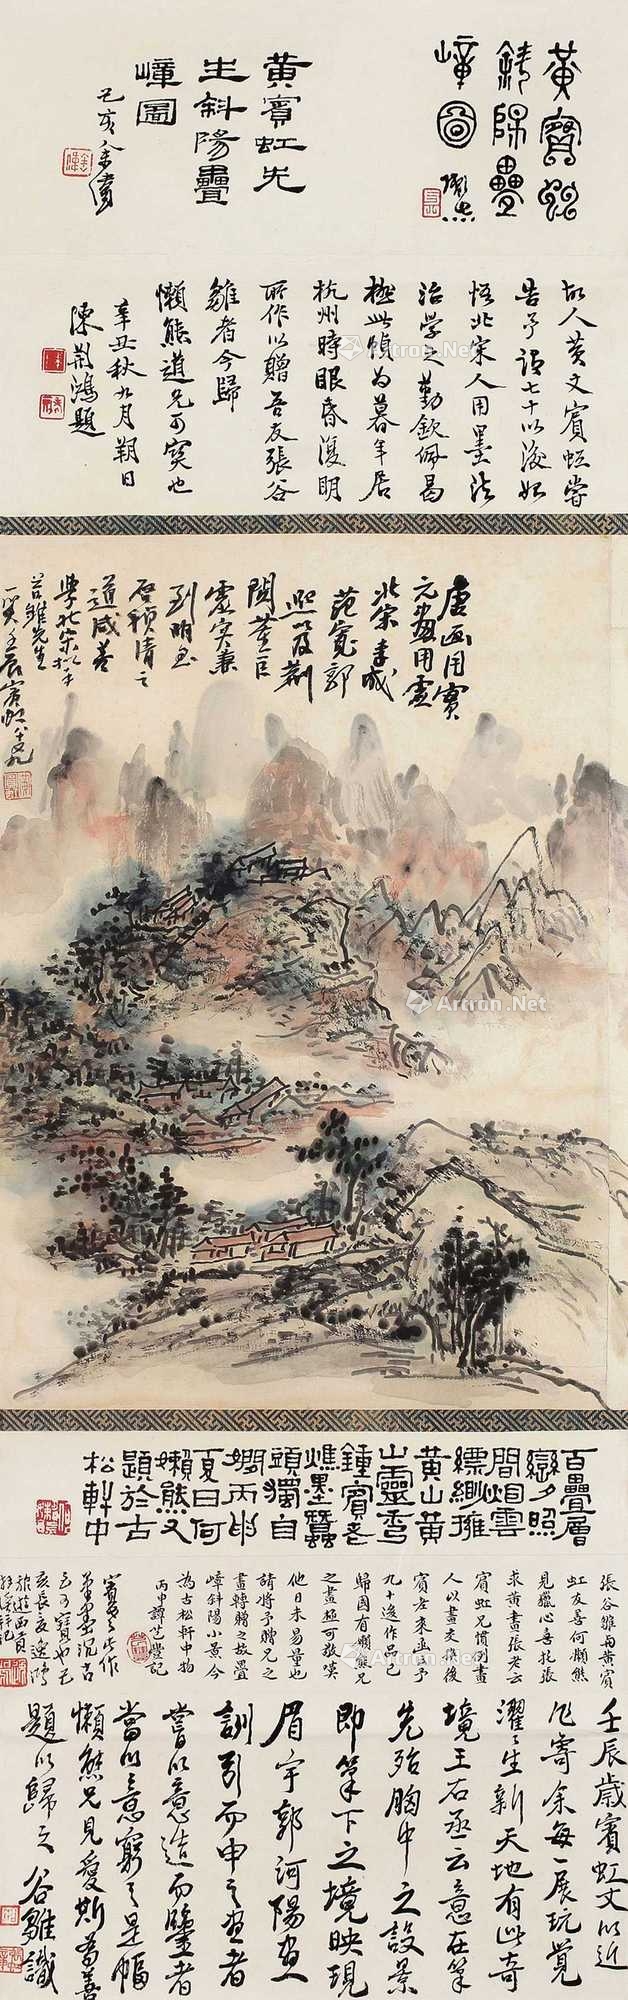 黃賓虹
斜陽疊
嶂圖
黃賓虹先
生斜陽疊
嶂圖
己亥
故人黃文賓虹嘗
告予謂七十以後始
悟北宋人用墨法
治學之勤欽佩曷
極此幀為暮年居
杭州時眼昏復明
所作以贈吾友張谷
雛者今歸
懶熊道兄可寶也
辛丑秋九月朔日
陳荊鴻題
Artron.Net
唐畫用實
元畫用虛
北宋李成
范寬郭
熙以及荊
關董巨
虛實兼
到明啟
禎清之
道咸善
學北宋
谷雛先生
一笑壬辰賓虹年八十又九
Artron.Net
百疊層
巒夕照
間烟雲
縹緲擁
黃山黃
山靈秀
鍾賓老
焦墨蠶
頭獨自
嫺丙申
夏日何
嬾熊又
題於古
松軒中
張谷雛與黃賓
虹友善何懶熊
見獵心喜托張
求黃畫張老云
賓虹兄慣例畫
人以書交換後
賓老來函予
九十後作品已
歸國有懶熊兄
之畫極可歎嘆
他日未易量也
請將予贈兄之
畫轉贈之故疊
嶂斜陽小景今
為古松軒中物
丙申譚芝蘐記
賓老此作
筆墨渾古
至可寶也己
Artron.Net
壬辰歲賓虹丈以近
作寄余每一展玩覺
濯濯生新天地有此奇
境王右丞云意在筆
先殆胸中之設景
即筆下之境映現
眉宇郭河陽畫
訓引而申之畫者
當以意造而鑒者
當以意窮之是幅
懶熊兄見愛斯蓄善
題以歸之 谷雛識